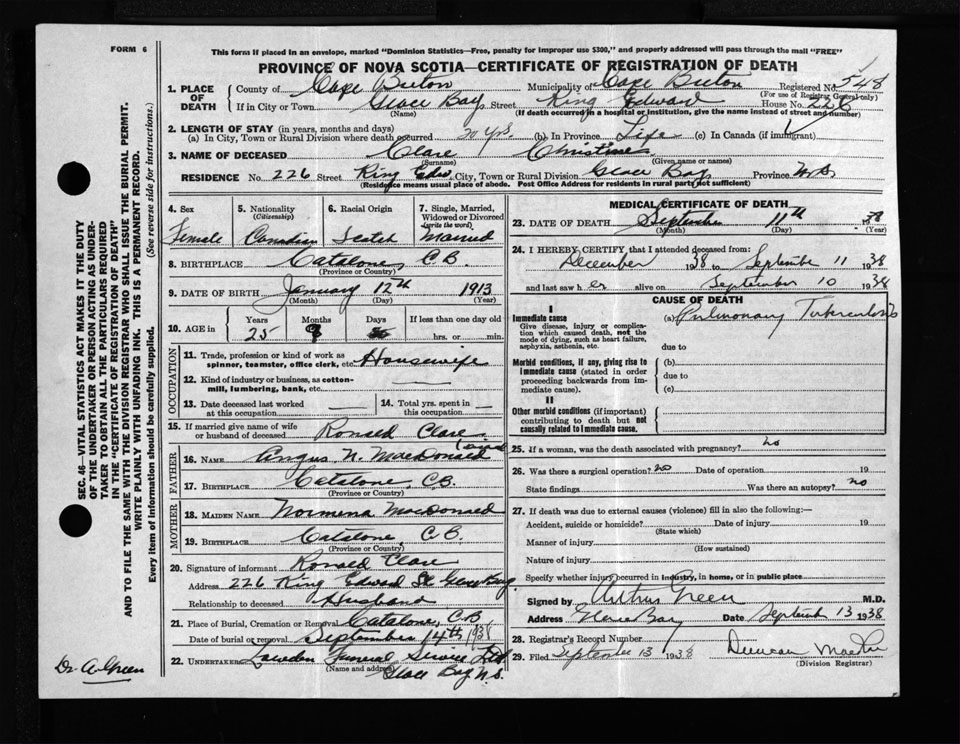 FORM 6
This form if placed in an envelope, marked "Dominion Statistics—Free, penalty for improper use $300," and properly addressed will pass through the mail "FREE"
PROVINCE OF NOVA SCOTIA—CERTIFICATE OF REGISTRATION OF DEATH
SEC. 46—VITAL STATISTICS ACT MAKES IT THE DUTY
OF THE UNDERTAKER OR PERSON ACTING AS UNDER-
TAKER TO OBTAIN ALL THE PARTICULARS REQUIRED
IN THE "CERTIFICATE OF REGISTRATION OF DEATH"
AND TO FILE THE SAME WITH THE DIVISION REGISTRAR WHO SHALL ISSUE THE BURIAL PERMIT.
WRITE PLAINLY WITH UNFADING INK. THIS IS A PERMANENT RECORD.
Every item of information should be carefully supplied. (See reverse side for instructions.)
1. PLACE OF DEATH County of Cape Breton Municipality of Cape Breton Registered No. 548
(For use of Registrar General only)
If in City or Town Glace Bay Street King Edward House No. 226
(Name) (If death occurred in a hospital or institution, give the name instead of street and number)
2. LENGTH OF STAY (in years, months and days)
(a) In City, Town or Rural Division where death occurred 20 yrs. (b) In Province Life (c) In Canada (if immigrant)
3. NAME OF DECEASED Clare Christine
(Surname) (Given name or names)
RESIDENCE No. 226 Street King Edw. City, Town or Rural Division Glace Bay Province N.S.
(Residence means usual place of abode. Post Office Address for residents in rural parts not sufficient)
4. Sex 5. Nationality (Citizenship) 6. Racial Origin 7. Single, Married, Widowed or Divorced (write the word)
Female Canadian Scotch Married
8. BIRTHPLACE Catalone, C.B.
(Province or Country)
9. DATE OF BIRTH January 12th 1913
(Month) (Day) (Year)
10. AGE in Years Months Days If less than one day
25 hrs. or min.
OCCUPATION
11. Trade, profession or kind of work as spinner, teamster, office clerk, etc. Housewife
12. Kind of industry or business, as cotton-mill, lumbering, bank, etc. —
13. Date deceased last worked at this occupation — 14. Total yrs. spent in this occupation —
15. If married give name of wife or husband of deceased Ronald Clare
FATHER
16. NAME Angus N. MacDonald
17. BIRTHPLACE Catalone, C.B.
(Province or Country)
MOTHER
18. MAIDEN NAME Normena MacDonald
19. BIRTHPLACE Catalone, C.B.
(Province or Country)
20. Signature of informant Ronald Clare
Address 226 King Edward St Glace Bay
Relationship to deceased Husband
21. Place of Burial, Cremation or Removal Catalone, C.B.
Date of burial or removal September 14th 1938
22. UNDERTAKER Lowden Funeral Service Ltd
(Name and address) Glace Bay N.S.
Dr. A. Green
MEDICAL CERTIFICATE OF DEATH
23. DATE OF DEATH September 11th 1938
(Month) (Day) (Year)
24. I HEREBY CERTIFY that I attended deceased from:
December 1938 to September 11 1938
and last saw her alive on September 10 1938
CAUSE OF DEATH
I
Immediate cause (a) Pulmonary Tuberculosis
Give disease, injury or complication which caused death, not the mode of dying, such as heart failure, asphyxia, asthenia, etc.
due to
Morbid conditions, if any, giving rise to immediate cause (stated in order proceeding backwards from immediate cause).
(b)
due to
(c)
II
Other morbid conditions (if important) contributing to death but not causally related to immediate cause.
25. If a woman, was the death associated with pregnancy? no
26. Was there a surgical operation? no Date of operation 19
State findings Was there an autopsy? no
27. If death was due to external causes (violence) fill in also the following:—
Accident, suicide or homicide? Date of injury 19
(State which)
Manner of injury
(How sustained)
Nature of injury
Specify whether injury occurred in industry, in home, or in public place
Signed by Arthur Green M.D.
Address Glace Bay Date September 13 1938
28. Registrar's Record Number
29. Filed September 13 1938 Duncan
(Division Registrar)